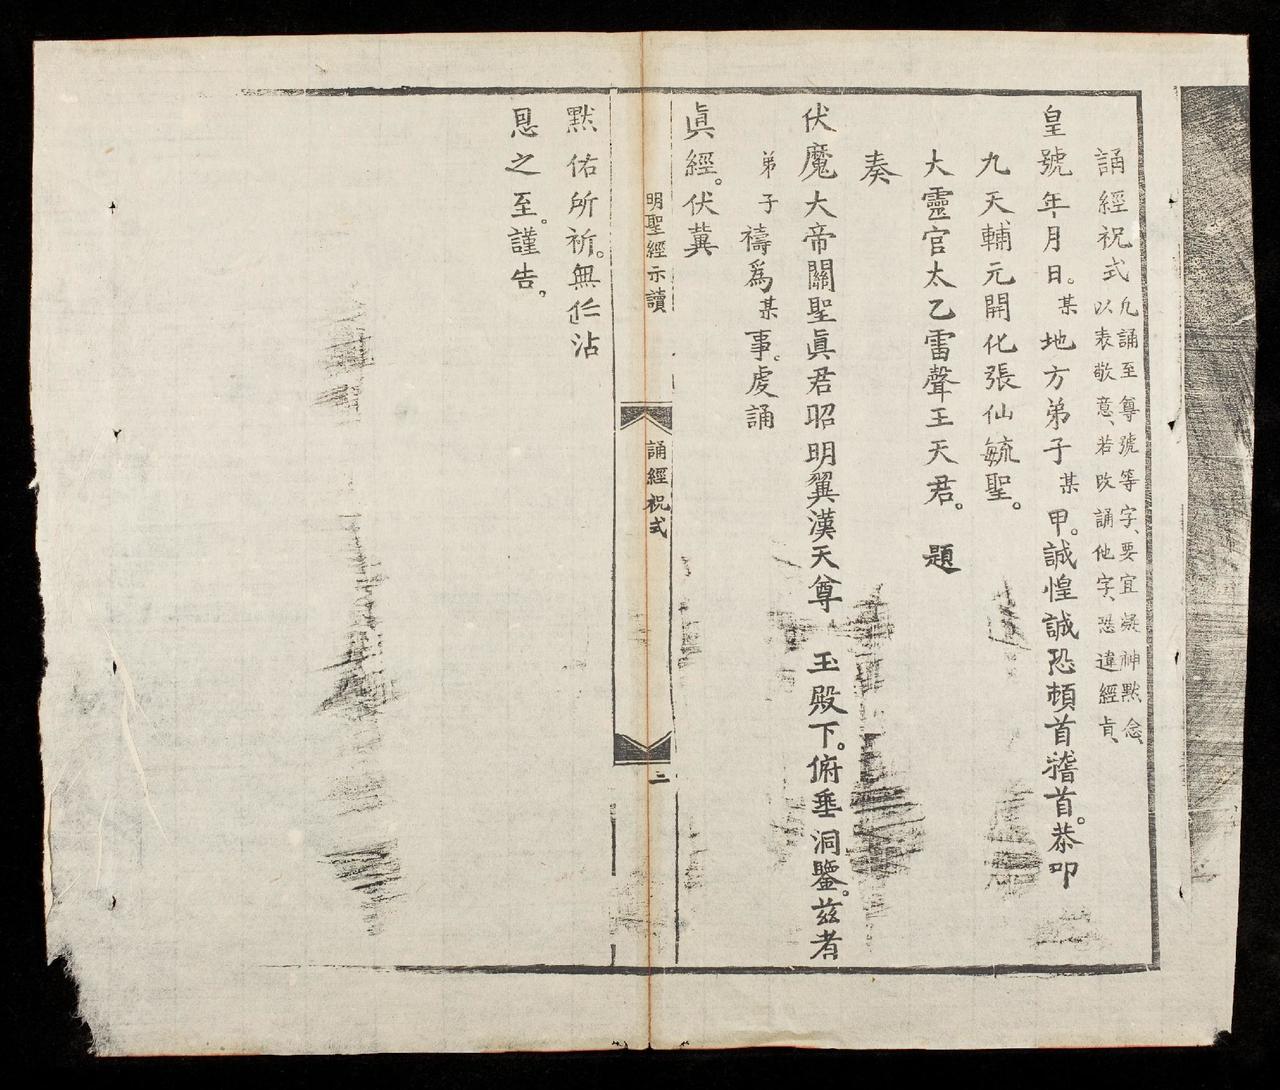 誦經祝式
凢誦至尊號等字、要宜凝神黙念、
以表敬意、若改誦他字、恐違經旨、
皇號年月日。某地方弟子某甲。誠惶誠恐頓首稽首。恭叩
九天輔元開化張仙毓聖。
大靈官太乙雷聲王天君。 題
奏
伏魔大帝關聖眞君昭明翼漢天尊 玉殿下。俯垂洞鑒。兹者
弟子禱爲某事。虔誦
眞經。伏冀
明聖經示讀
誦經祝式
二
黙佑所祈。無任沾
恩之至。謹告。